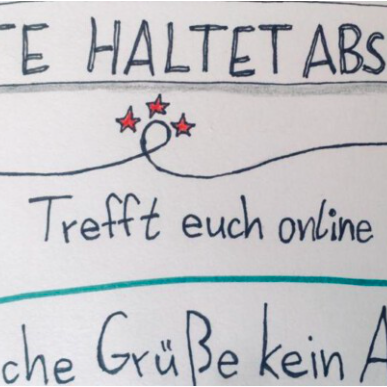 TE HALTET ABS
Trefft euch online
che Grüße kein A